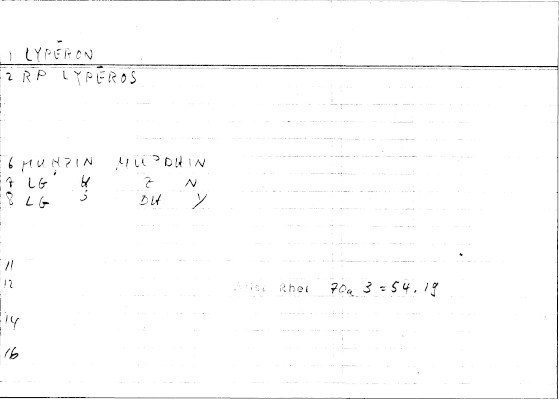 1 LYPĒRON
2 RP LYPĒROS
6 MUḤZIN MUʾDHIN
7 LG Ḥ Z N
8 LG ʾ DH Y
11
12 Rhet 70a 3 = 54.19
14
16